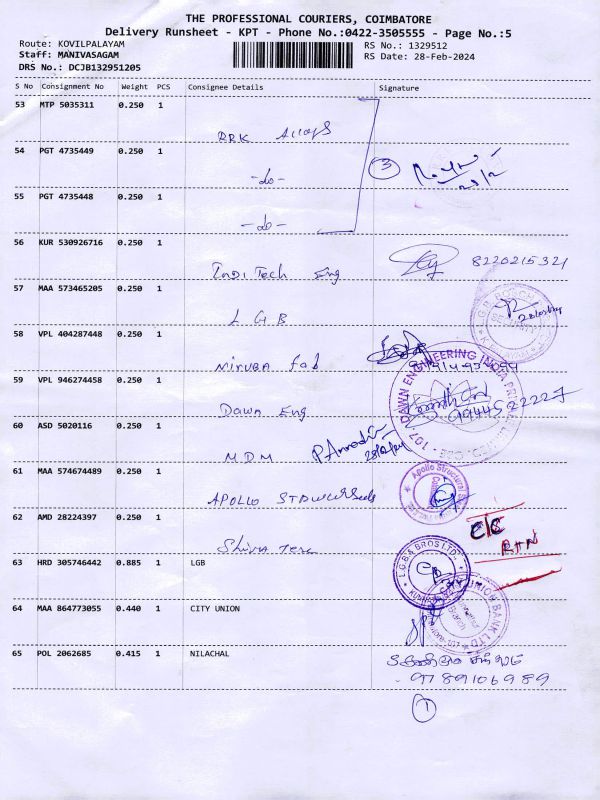 THE PROFESSIONAL COURIERS, COIMBATORE
Delivery Runsheet - KPT - Phone No.:0422-3505555 - Page No.:5
Route: KOVILPALAYAM RS No.: 1329512
Staff: MANIVASAGAM RS Date: 28-Feb-2024
DRS No.: DCJB132951205
S No Consignment No Weight PCS Consignee Details Signature
53 MTP 5035311 0.250 1
RRK Alloys
54 PGT 4735449 0.250 1
-do- 3
55 PGT 4735448 0.250 1
-do-
56 KUR 530926716 0.250 1
Tech Eng 8220215321
57 MAA 573465205 0.250 1
LGB
58 VPL 404287448 0.250 1
Niruba fab
59 VPL 946274458 0.250 1
Dawn Eng
DAWN ENGINEERING INDIA
60 ASD 5020116 0.250 1
MDM 28/2/24
61 MAA 574674489 0.250 1
APOLLO
Apollo Structural
62 AMD 28224397 0.250 1
Shiva
C/S
RTN
63 HRD 305746442 0.885 1 LGB
L.G.B & BROS LTD.
64 MAA 864773055 0.440 1 CITY UNION
CITY UNION BANK LTD
65 POL 2062685 0.415 1 NILACHAL
9789106989
1